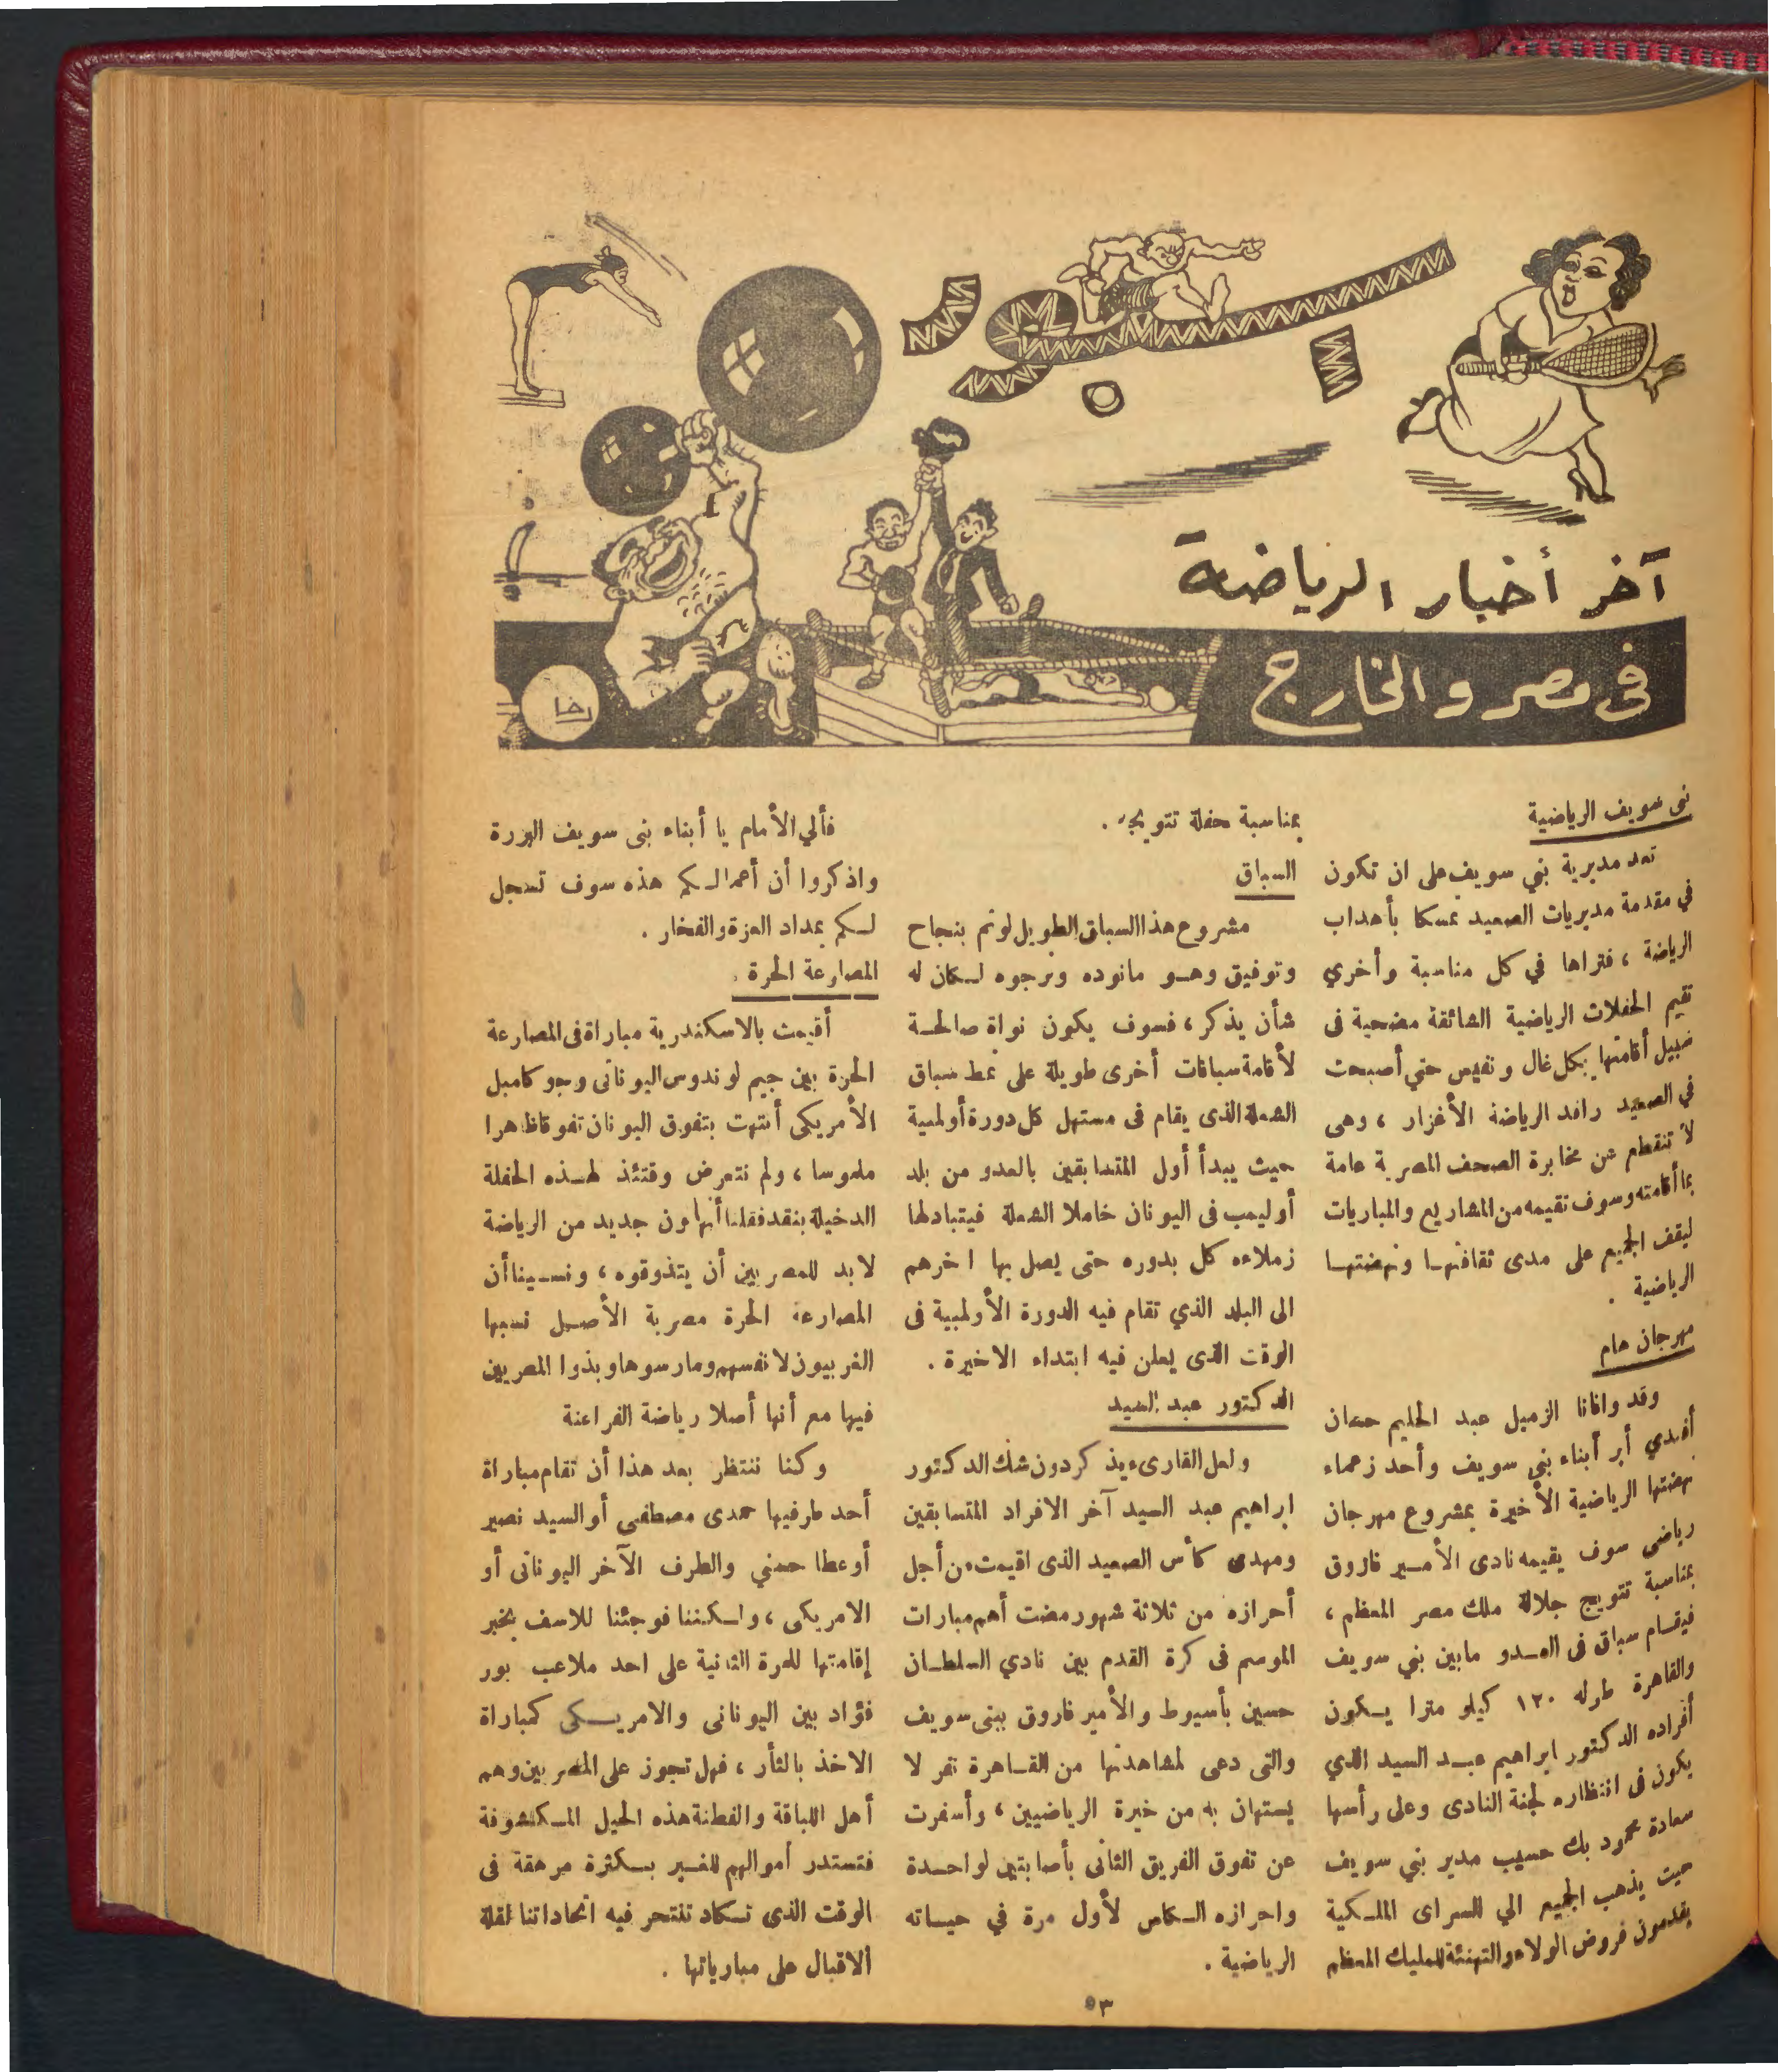 سبور
آخر أخبار الرياضة
فى مصر والخارج
رخا
بنى سويف الرياضية
تعد مديرية بني سويف على ان تكون
في مقدمة مديريات الصعيد تمسكا بأهداب
الرياضة ، فتراها في كل مناسبة وأخري
تقيم الحفلات الرياضية الشائقة مضحية فى
سبيل أقامتها بكل غال ونفيس حتي أصبحت
في الصعيد رافد الرياضة الأغزار ، وهى
لا تنقطع عن مخابرة الصحف المصرية عامة
بما أقامته وسوف تقيمه من المشاريع والمباريات
ليقف الجميع على مدى ثقافتها ونهضتها
الرياضية .
مهرجان هام
وقد وافانا الزميل عبد الحليم حسان
أفندي أبر أبناء بني سويف وأحد زعماء
نهضتها الرياضية الأخيرة بمشروع مهرجان
رياضى سوف يقيمه نادى الأمير فاروق
بمناسبة تتويج جلالة ملك مصر المعظم ،
فيقام سباق فى العدو مابين بني سويف
والقاهرة طوله ١٢٠ كيلو مترا يكون
أفراده الدكتور ابراهيم عبد السيد الذي
يكون فى انتظاره لجنة النادى وعلى رأسها
سعادة محمود بك حسيب مدير بني سويف
حيث يذهب الجميع الي السراى الملكية
يقدمون فروض الولاء والتهنئة للمليك المعظم
بمناسبة حفلة تتويجه .
السباق
مشروع هذا السباق الطويل لو تم بنجاح
وتوفيق وهو مانوده ونرجوه لكان له
شأن يذكر ، فسوف يكون نواة صالحة
لأقامة سباقات أخرى طويلة على نمط سباق
الشعلة الذى يقام فى مستهل كل دورة أولمبية
حيث يبدأ أول المتسابقين بالعدو من بلد
أوليمب فى اليونان حاملا الشعلة فيتبادلها
زملاءه كل بدوره حتى يصل بها اخرهم
الى البلد الذي تقام فيه الدورة الأولمبية فى
الوقت الذى يعلن فيه ابتداء الاخيرة .
الدكتور عبد السيد
ولعل القارىء يذكر دون شك الدكتور
ابراهيم عبد السيد آخر الافراد المتسابقين
ومهدى كأس الصعيد الذى اقيمت من أجل
أحرازه من ثلاثة شهور مضت أهم مبارات
الموسم فى كرة القدم بين نادي السلطان
حسين بأسيوط والأمير فاروق ببنى سويف
والتى دعى لمشاهدتها من القاهرة نفر لا
يستهان به من خيرة الرياضيين ، وأسفرت
عن تفوق الفريق الثانى بأصابتين لواحدة
واحرازه الكاس لأول مرة في حياته
الرياضية .
فألي الأمام يا أبناء بنى سويف البررة
واذكروا أن أعمالكم هذه سوف تسجل
لكم بمداد العزة والفخار .
المصارعة الحرة .
أقيمت بالاسكندرية مباراة فى المصارعة
الحرة بين جيم لوندوس اليونانى وجو كامبل
الأمريكى أنتهت بتفوق اليونان تفوقا ظاهرا
ملموسا ، ولم نتعرض وقتئذ لهذه الحفلة
الدخيلة بنقد فقلنا أنها لون جديد من الرياضة
لابد للمصريين أن يتذوقوه ، ونسينا أن
المصارعة الحرة مصرية الأصل نسبها
الغربيون لانفسهم ومارسوها وبذوا المصريين
فيها مع أنها أصلا رياضة الفراعنة
وكنا ننتظر بعد هذا أن تقام مباراة
أحد طرفيها حمدى مصطفى أو السيد نصير
أو عطا حسني والطرف الآخر اليونانى أو
الامريكى ، ولكننا فوجئنا للاسف بخبر
إقامتها للمرة الثانية على احد ملاعب بور
فؤاد بين اليونانى والامريكى كمباراة
الاخذ بالثأر ، فهل تجوز على المصريين وهم
أهل اللباقة والفطنة هذه الحيل المكشوفة
فتستدر أموالهم للغير بكثرة مرهقة فى
الوقت الذى تكاد تنتحر فيه اتحاداتنا لقلة
الاقبال على مبارياتها .
٥٣